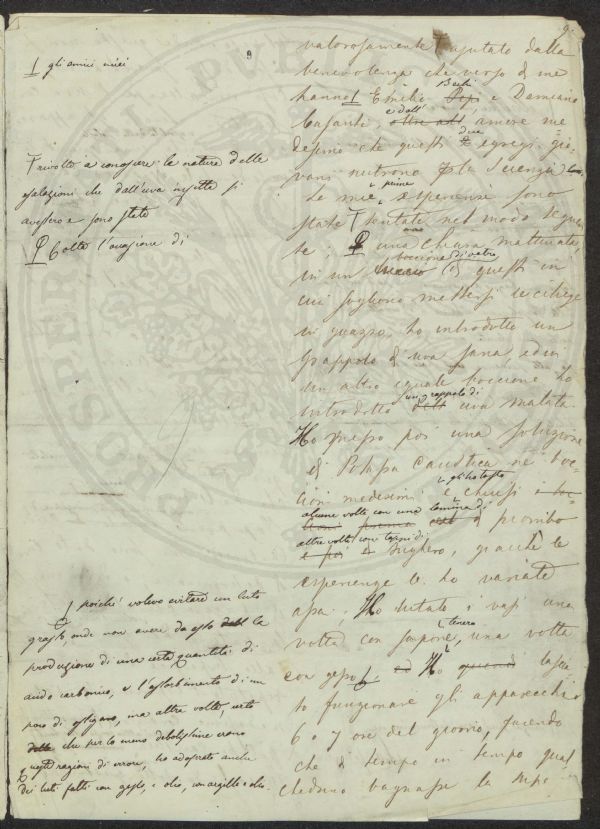 9.
gli amici miei
rivolte a conoscere la natura delle
esalazioni che dall'uva infetta si
avessero e sono state
Colto l'occasione di
poiché volevo evitare un luto
grasso, onde non avere da esso della
produzione di una certa quantità di
acido carbonico, e l'assorbimento di un
poco di ossigeno, ma altre volte, certo
che per lo meno debolissime erano
queste ragioni di errore, ho adoprato anche
dei luti fatti con gesso, e olio, con argilla e olio.
valorosamente ajutato dalla
benevolenza che verso di me
hanno Emilio Bechi e Damiano
Casanti, e dall' amore me-
desimo che questi due egregi gio-
vani nutrono per la Scienza
Le mie prime esperienze sono
state tentate nel modo seguen-
te; una chiara mattinata,
in un boccione di vetro di questi in
cui sogliono mettersi le ciliege
in guazzo, ho introdotto un
grappolo d'uva sana, ed in
un altro eguale boccione ho
introdotto un grappolo di uva malata.
Ho messo poi una soluzione
di Potassa caustica ne' boc-
cioni medesimi e gli ho tosto chiusi
alcune volte con una lamina di piombo
altre volte con tappi di sughero, giacchè le
esperienze le ho variate
assai; Ho lutato i vasi una
volta con sapone tenero, una volta
con gesso; Ho lascia-
to funzionare gli apparecchi
6 o 7 ore del giorno, facendo
che di tempo in tempo qual
cheduno bagnasse la supe-